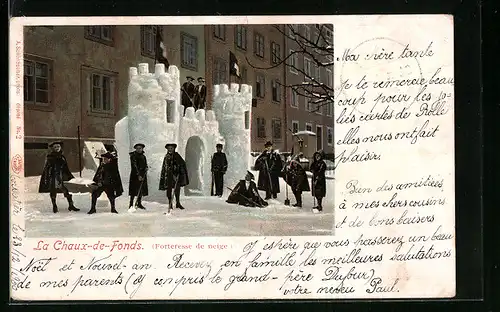 Ma chère tante
Je te remercie beau
coup pour les jo-
lies cartes de Rolle
elles nous ont fait
plaisir.
Bien des amitiées
à mes chers cousins
et de bons baisers
La Chaux-de-Fonds. (Forteresse de neige)
J'espère que vous passerez un beau
Noël et Nouvel-an. Recevez en famille les meilleures salutations
de mes parents (y compris le grand-père Dufour)
votre neveu Paul.
No. 2